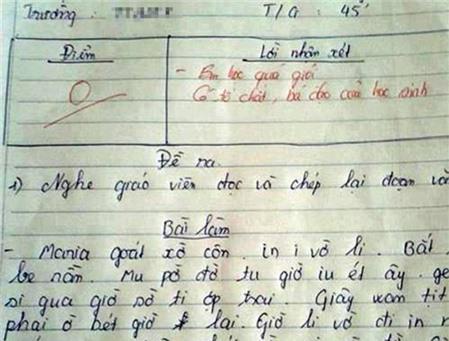 Trường : T/G : 45'
Điểm Lời nhận xét
0 - Em học quá giỏi
Có tố chất, bá đạo của học sinh
Đề ra.
1) Nghe giáo viên đọc và chép lại đoạn văn
Bài làm
- Maria goát xờ côn. in i vờ li. Bát
be nằn. Mu pờ đờ tu giờ iu ét ây. ge
si qua giờ sờ ti ớp trai. Giây xam tít
phai ờ bét giờ lai. Giờ li vờ đi in n